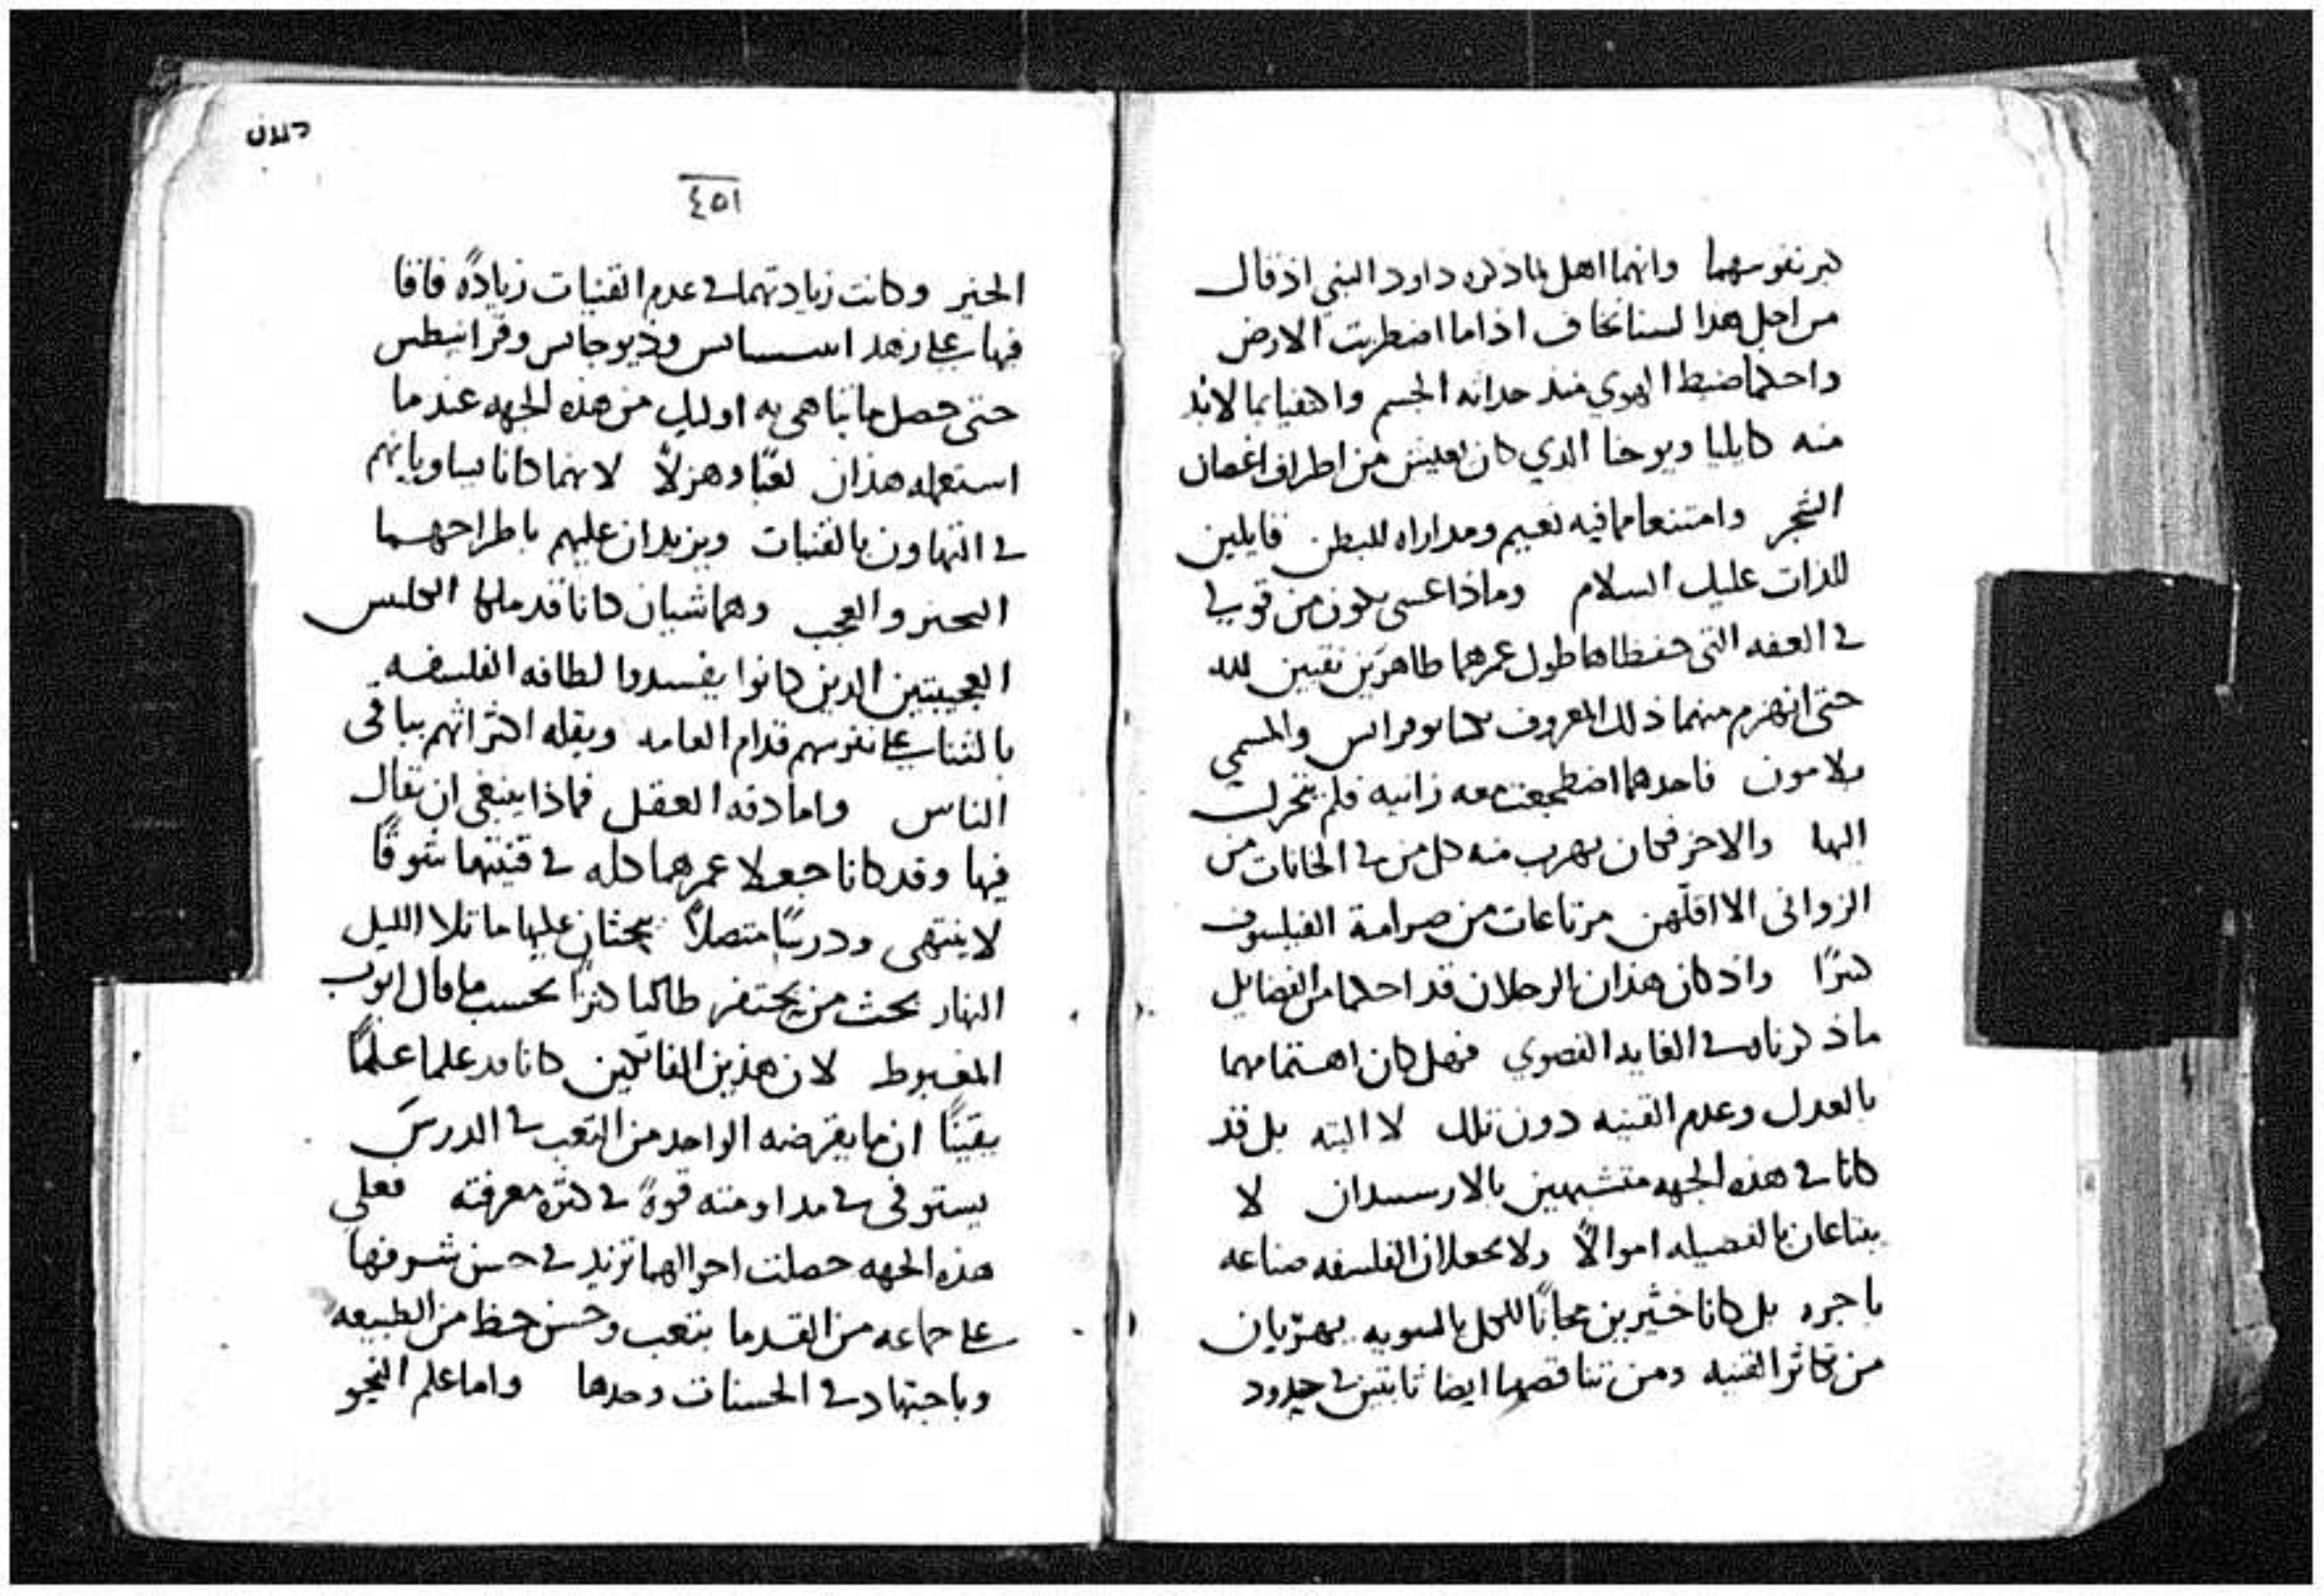 كبر نفوسهما وانهما اهل لما ذكره داود النبي اذ قال
من اجل هدا لسنا نخاف اذا ما اضطربت الارض
واحكما ضبط الهوي منذ حداثه الجسم واكتفيا بما لابد
منه كايليا ويوحنا الدي كان يعيش من اطراف اغصان
الشجر وامتنعا مما فيه نعيم ومداراه للبطن قايلين
للذات عليك السلام وماذا عسى يكون من قوي لي
في العفه التي حفظاها طول عمرهما طاهرَين نقيين لله
حتى انهزم منهما ذلك المعروف والمسمي
فاحدهما اضطجعت معه زانيه فلم يتحرك
اليها والاخر فكان يهرب منه كل من في الخانات من
الزواني الا اقلّهن مرتاعات من صرامة الفيلسوف
كثرًا واذ كان هذان الرجلان قد احكما من الفضايل
ما ذكرناه في الغايه القصوي فهل كان اهتمامهما
بالعدل وعدم القنيه دون تلك لا البته بل قد
كانا في هذه الجهه متشبهين لا
يبتاعان بالفضيله اموالًا ولا يجعلان الفلسفه صناعه
باجره بل كانا خيّرين مجانًا للكل بالسويه يهتزيان
من تكاثر القنيه ومن تناقصها ايضا ثابتين في حدود
٤٥١
الخير وكانت زيادتهما في عدم القنيات زيادةً فاقا
فيها على زهد وذيوجانس وقراتيطس
حتى حصل ما تباهى به اوليك من هذه الجهه عندما
استعمله هذان لعبًا وهزلًا لانهما كانا يساويانهم
في التهاون بالقنيات ويزيدان عليهم باطراحهما
والعجب وهما شيان كانا قد ملكا
العجيبتين الدين كانوا يفسدوا لطافه الفلسفه
بالثنا على نفوسهم قدام العامه وبقله اكتراثهم بباقى
الناس واما دقه العقل فماذا ينبغي ان يقال
فيها وقد كانا جعلا عمرهما كله في قنيتها شوقًا
لا ينتهى ودربًا متصلًا يبحثان عليها ما تلا الليل
النهار بحث من يحتفر طالبا كنزًا بحسب ما قال ايوب
المغبوط لان هذين الفاضلين كانا قد علما علمًا
يقينًا ان ما يقرضه الواحد من التعب في الدرس
يستوفى في مداومته قوةً في كثره معرفته فعلي
هذه الجهه حصلت احوالهما تزيد في حسن شرفها
على جماعه من القدما بتعب وحسن حظ من الطبيعه
وباجتهاد في الحسنات وحدها واما علم النحو